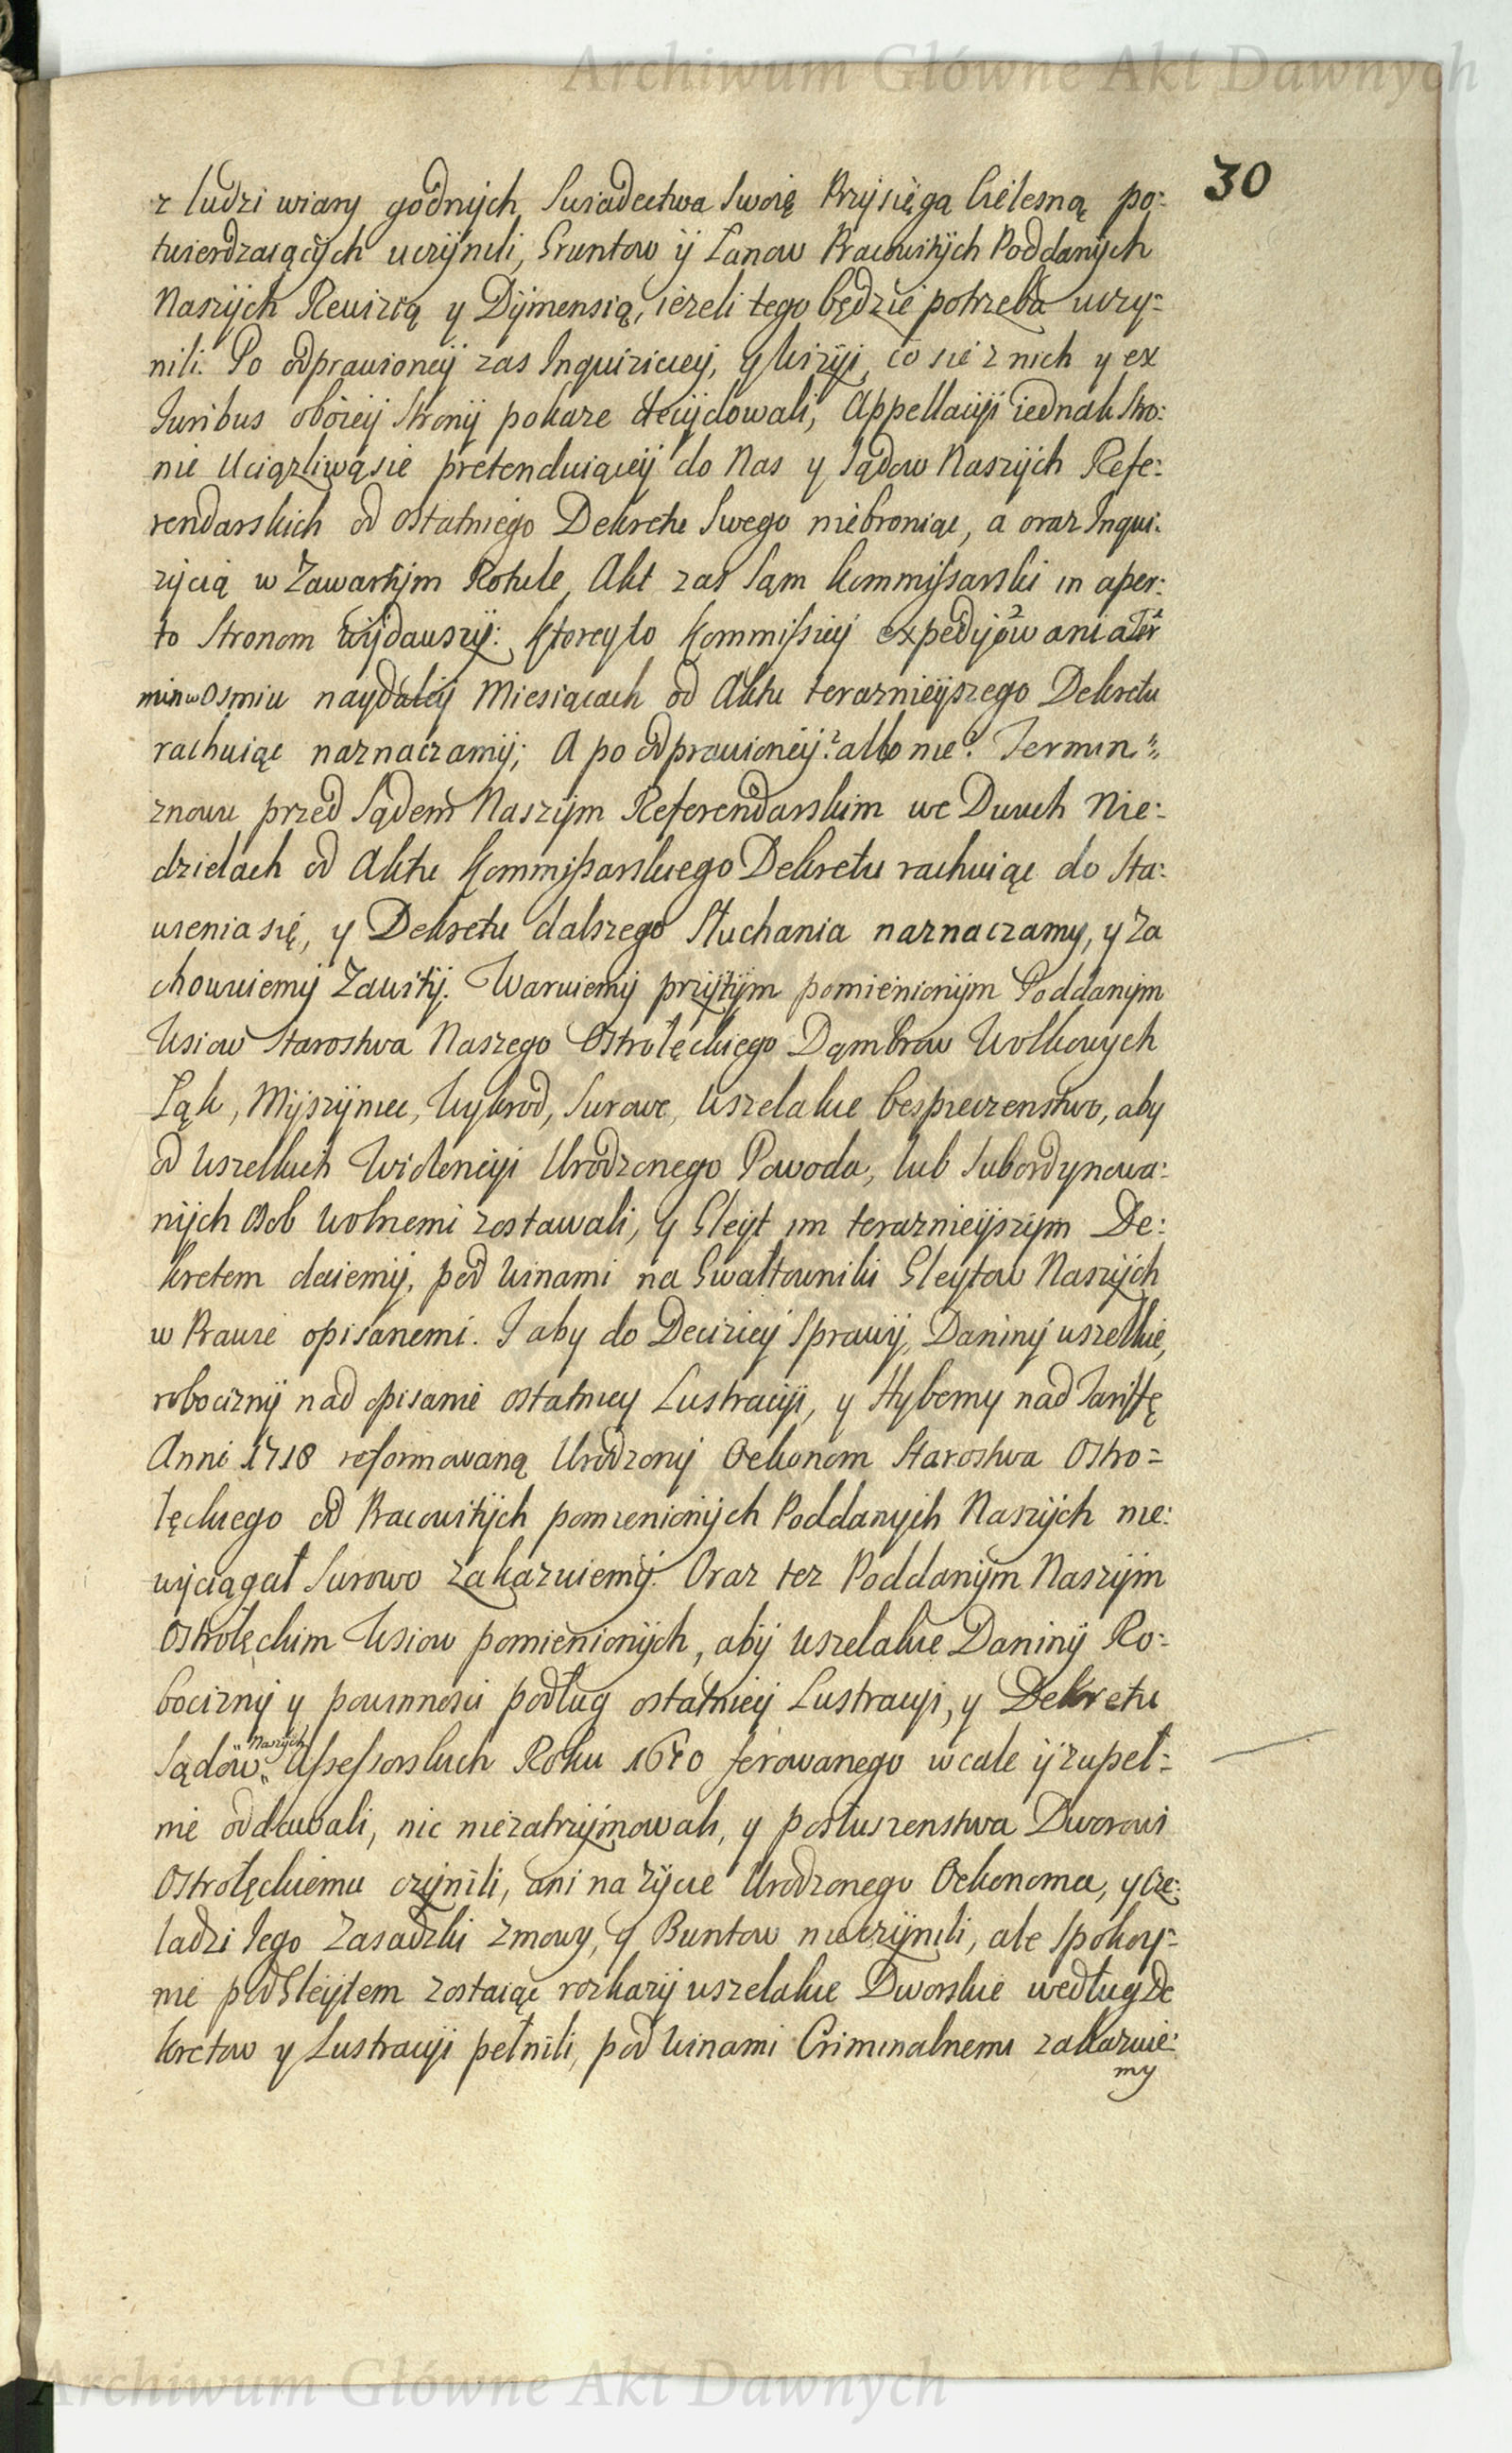 Archiwum Główne Akt Dawnych
30
z ludzi wiary godnych Swiadectwa Swoię Przysięgą Cielesną po:
twierdzaiących uczynili, Gruntow y Łanow Pracowitych Poddanych
Naszych Rewizią y Dymensią, ieżeli tego będzie potrzeba uczy=
nili. Po odprawioney zas Inquizicyey, y Wizyi, co sie z nich y ex
Juribus oboiey Strony pokaze decydowali, Appellacyi iednak Stro:
nie Uciązliwą sie pretenduiącey do Nas y Sądow Naszych Refe:
rendarskich od ostatniego Dekretu Swego niebroniąc, a oraz Inqui:
zycią w Zawartym Rotule, Akt zas Sąm Kommissarski in aper:
to Stronom wydawszy: Ktorey to Kommissiey expedyowania Ter
min w Osmiu naydaley Miesiącach od Aktu teraznieyszego Dekretu
rachuiąc naznaczamy; A po odprawioney? albo nie? Termin
znowu przed Sądem Naszym Referendarskim we Dwuch Nie:
dzielach od Aktu Kommissarskiego Dekretu rachuiąc do Sta:
wienia się, y Dekretu dalszego Słuchania naznaczamy, y Za
chowuiemy Zawity. Waruiemy przytym pomienionym Poddanym
Wsiow Starostwa Naszego Ostrołęckiego Dąmbrow Wolkowych
Łąk, Myszyniec, Wykrod, Surowe, Wszelakie bespieczenstwo, aby
od Wszelkich Wiolencyi Urodzonego Powoda, lub Subordynowa:
nych Osob Wolnemi zostawali, y Gleyt im teraznieyszym De:
kretem daiemy, pod Winami na Gwałtowniki Gleytow Naszych
w Prawie opisanemi. I aby do Deciziey Sprawy, Daniny wszelkie,
robocizny nad opisanie ostatniey Lustracyi, y Hyberny nad Taryffę
Anni 1718 reformowaną Urodzony Oekonom Starostwa Ostro=
łęckiego od Pracowitych pomienionych Poddanych Naszych nie:
wyciągał Surowo zakazuiemy. Oraz tez Poddanym Naszym
Ostrołęckim Wsiow pomienionych, aby Wszelakie Daniny Ro:
bocizny y powinnosci podług ostatniey Lustracyi, y Dekretu
Sądow Naszych Assessorskich Roku 1670 ferowanego wcale y zupeł=
nie oddawali, nic niezatrzymowali, y posłuszenstwa Dworowi
Ostrołęckiemu czynili, ani na życie Urodzonego Oekonoma, y Cze:
ladzi Jego Zasadzki Zmowy, y Buntow nieczynili, ale Spokoy=
nie pod Gleytem zostaiąc rozkazy wszelakie Dworskie według De
kretow y Lustracyi pełnili, pod Winami Criminalnemi zakazuie:
my
Archiwum Główne Akt Dawnych